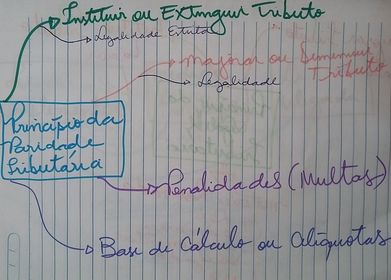 Instituir ou Extinguir Tributo
Legalidade Estrita
Majorar ou Diminuir
Tributo
Legalidade
Princípio da
Paridade
Tributária
Penalidades (Multas)
Base de Cálculo ou Alíquotas